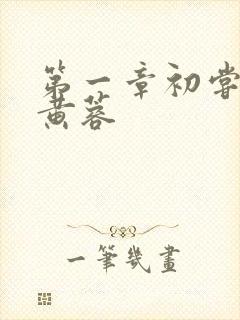 第一章初嘗
黄蓉
一筆幾畫